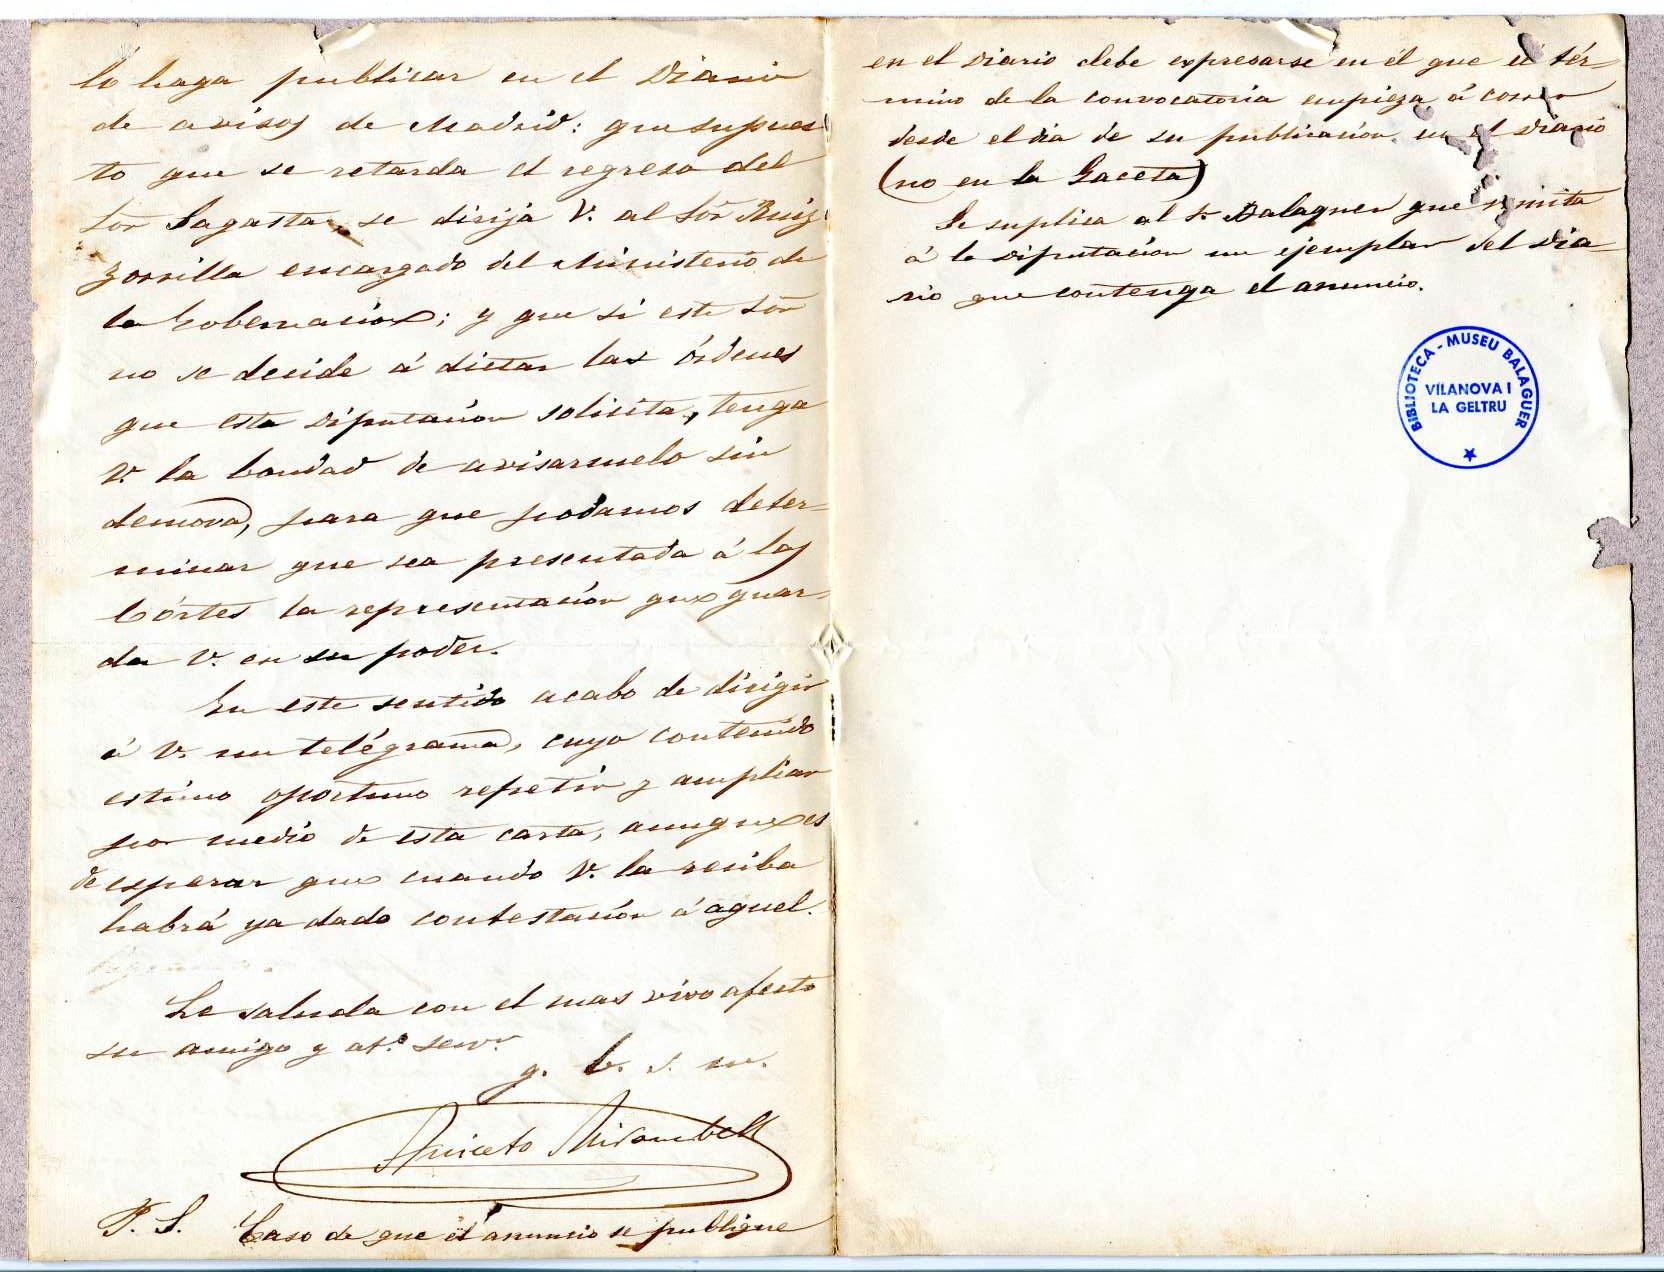 lo haga publicar en el Diario
de avisos de Madrid: que supues
to que se retarda el regreso del
Sor̃ Sagasta, se dirija V. al Sor̃ Ruiz
Zorrilla encargado del Ministerio de
la Gobernacion; y que si este Sor̃
no se decide á dictar las órdenes
que esta Diputacion solicita, tenga
V. la bondad de avisarmelo sin
demora, para que podamos deter-
minar que sea presentada á las
Córtes la representacion que guar-
da V. en su poder.
En este sentido acabo de dirigir
á V. un telégrama, cuyo contenido
estimo oportuno repetir y ampliar
por medio de esta carta, aunque es
de esperar que cuando V. la reciba
habrá ya dado contestacion á aquel.
Le saluda con el mas vivo afecto
su amigo y at.º serv.r
q. b. s. m.
Aniceto Mirambell
P. S. Caso de que el anuncio se publique
en el Diario debe expresarse en él que el tér-
mino de la convocatoria empieza á correr
desde el dia de su publicacion en el Diario
(no en la Gaceta)
Se suplica al Sr. Balaguer que remita
á la Diputacion un ejemplar del Dia-
rio que contenga el anuncio.
BIBLIOTECA - MUSEU BALAGUER
VILANOVA I
LA GELTRU